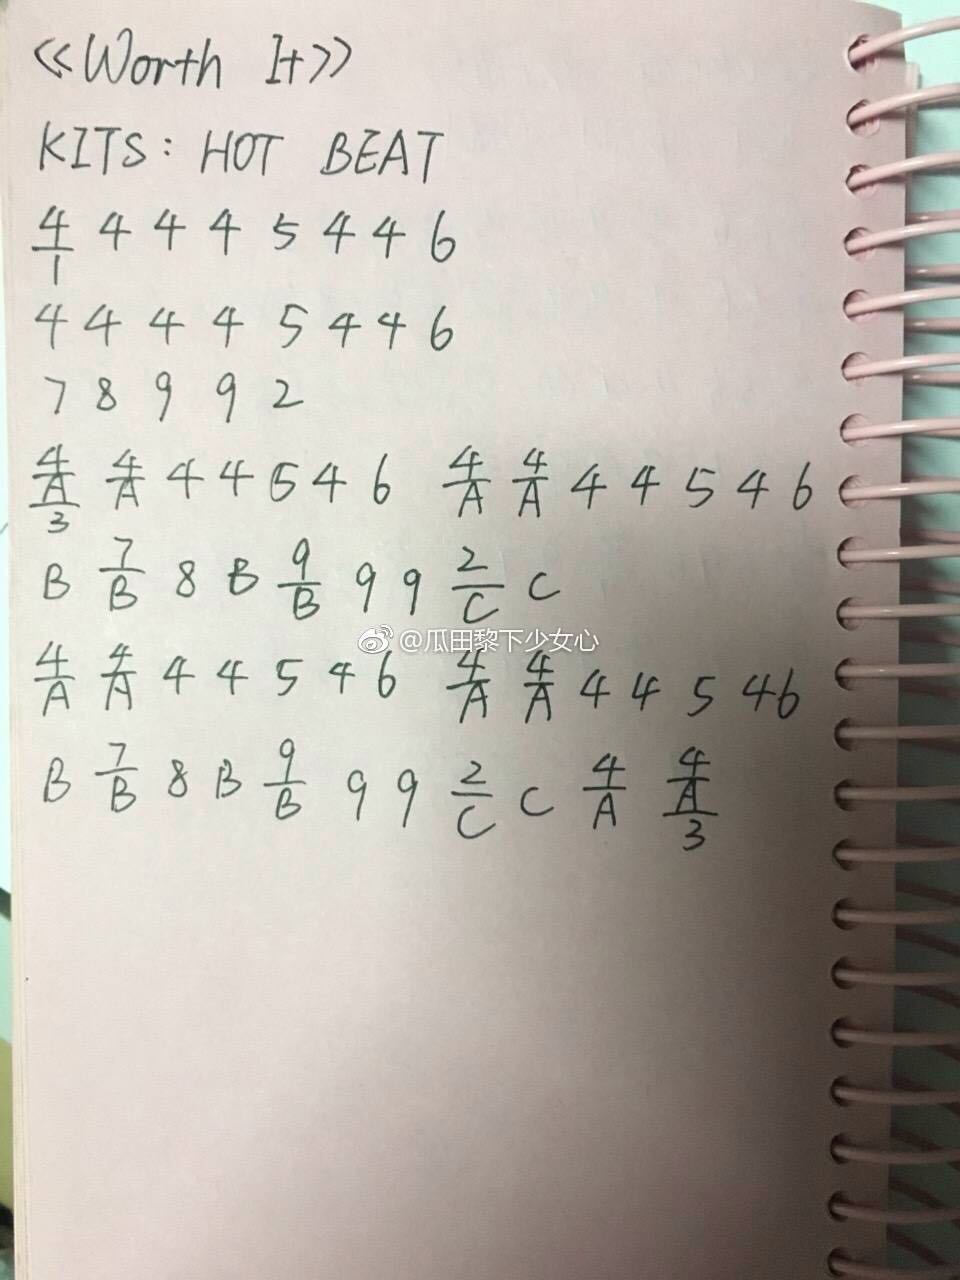 《Worth It》
KITS: HOT BEAT
4/1 4 4 4 5 4 4 6
4 4 4 4 5 4 4 6
7 8 9 9 2
4/A/3 4/A 4 4 5 4 6 4/A 4/A 4 4 5 4 6
B 7/B 8 B 9/B 9 9 2/C C
@瓜田黎下少女心
4/A 4/A 4 4 5 4 6 4/A 4/A 4 4 5 4 6
B 7/B 8 B 9/B 9 9 2/C C 4/A 4/A/3